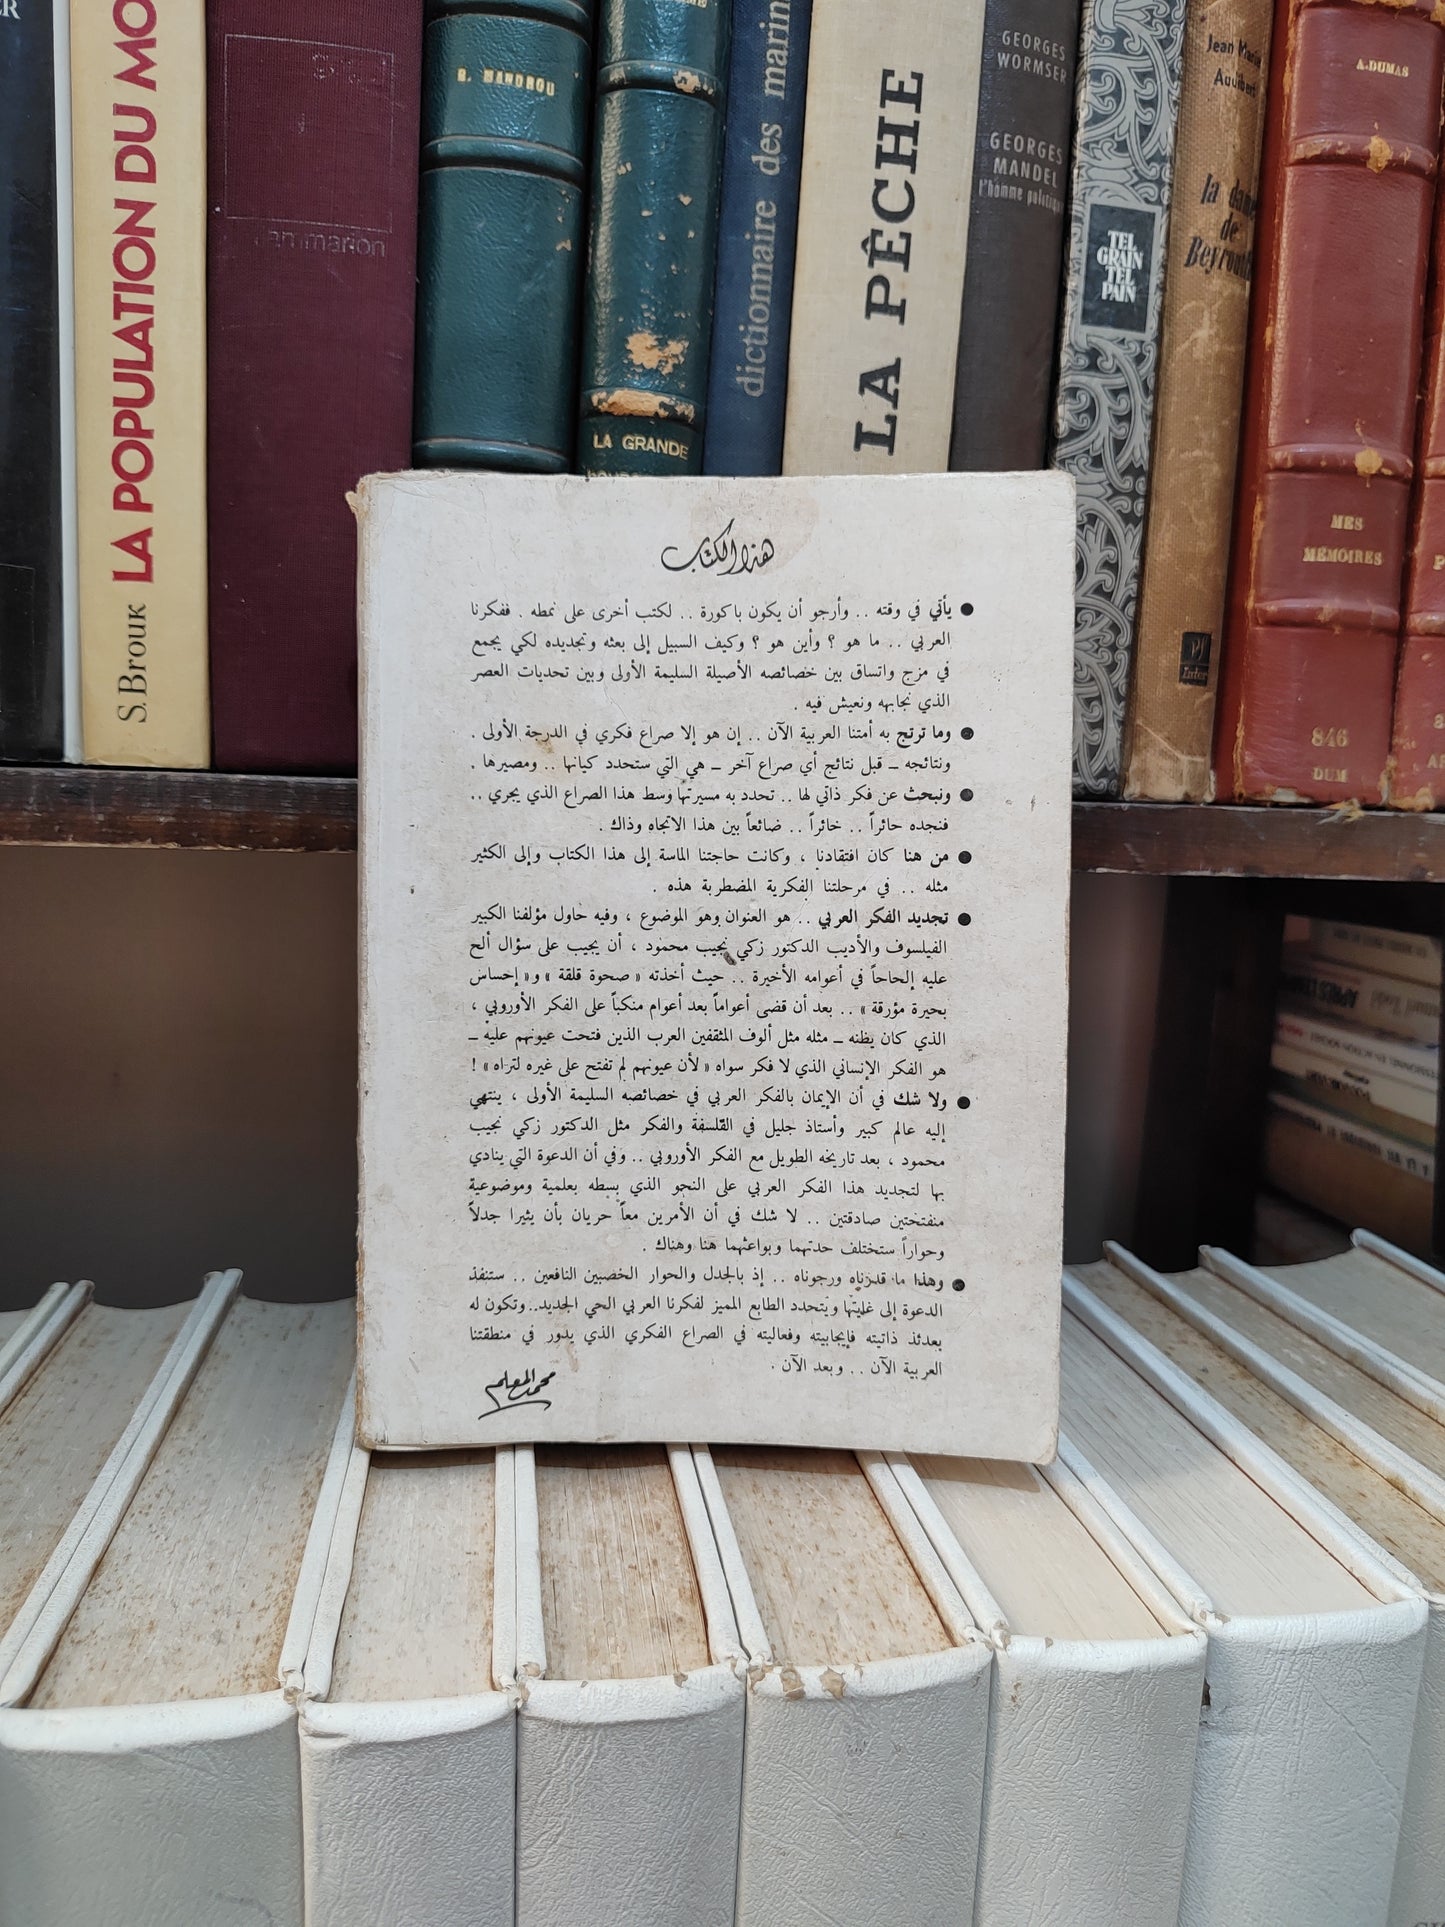 S. BROUK LA POPULATION DU MO
flammarion
R. MANDROU
LA GRANDE
dictionnaire des marin
LA PÊCHE
GEORGES
WORMSER
GEORGES
MANDEL
l'homme politique
TEL
GRAIN
TEL
PAIN
Jean Marie
Audibert
la dame
de
Beyrouth
Inter
A. DUMAS
MES
MÉMOIRES
846
DUM
هذا الكتاب
● يأتي في وقته .. وأرجو أن يكون باكورة .. لكتب أخرى على نمطه . ففكرنا
العربي .. ما هو ؟ وأين هو ؟ وكيف السبيل إلى بعثه وتجديده لكي يجمع
في مزج واتساق بين خصائصه الأصيلة السليمة الأولى وبين تحديات العصر
الذي نجابهه ونعيش فيه .
● وما ترتج به أمتنا العربية الآن .. إن هو إلا صراع فكري في الدرجة الأولى .
ونتائجه ــ قبل نتائج أي صراع آخر ــ هي التي ستحدد كيانها .. ومصيرها .
● ونبحث عن فكر ذاتي لها .. تحدد به مسيرتها وسط هذا الصراع الذي يجري ..
فنجده حائراً .. خائراً .. ضائعاً بين هذا الاتجاه وذاك .
● من هنا كان افتقادنا ، وكانت حاجتنا الماسة إلى هذا الكتاب وإلى الكثير
مثله .. في مرحلتنا الفكرية المضطربة هذه .
● تجديد الفكر العربي .. هو العنوان وهو الموضوع ، وفيه حاول مؤلفنا الكبير
الفيلسوف والأديب الدكتور زكي نجيب محمود ، أن يجيب على سؤال ألح
عليه إلحاحاً في أعوامه الأخيرة .. حيث أخذته « صحوة قلقة » و« إحساس
بحيرة مؤرقة » .. بعد أن قضى أعواماً بعد أعوام منكباً على الفكر الأوروبي ،
الذي كان يظنه ــ مثله مثل ألوف المثقفين العرب الذين فتحت عيونهم عليه ــ
هو الفكر الإنساني الذي لا فكر سواه « لأن عيونهم لم تفتح على غيره لتراه » !
● ولا شك في أن الإيمان بالفكر العربي في خصائصه السليمة الأولى ، ينتهي
إليه عالم كبير وأستاذ جليل في الفلسفة والفكر مثل الدكتور زكي نجيب
محمود ، بعد تاريخه الطويل مع الفكر الأوروبي .. وفي أن الدعوة التي ينادي
بها لتجديد هذا الفكر العربي على النحو الذي بسطه بعلمية وموضوعية
منفتحتين صادقتين .. لا شك في أن الأمرين معاً حريان بأن يثيرا جدلاً
وحواراً ستختلف حدتهما وبواعثهما هنا وهناك .
● وهذا ما قدرناه ورجوناه .. إذ بالجدل والحوار الخصبين النافعين .. ستنفذ
الدعوة إلى غايتها ويتحدد الطابع المميز لفكرنا العربي الحي الجديد.. وتكون له
بعدئذ ذاتيته فإيجابيته وفعاليته في الصراع الفكري الذي يدور في منطقتنا
العربية الآن .. وبعد الآن .
محمد المعلم